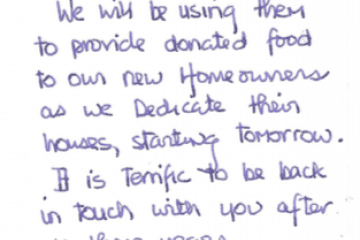 We will be using them
to provide donated food
to our new Homeowners
as we Dedicate their
houses, starting Tomorrow.
It is Terrific to be back
in touch with you after